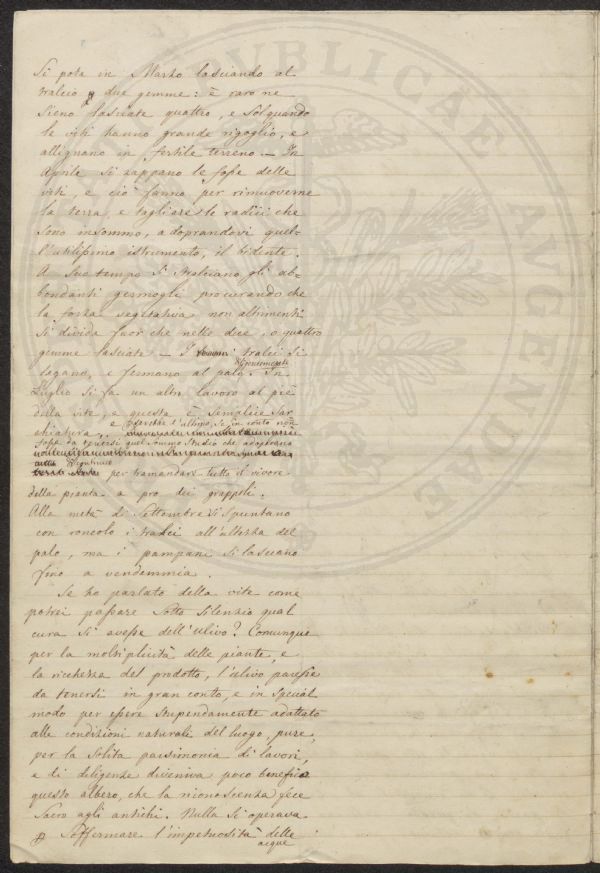 Si pota in Marzo lasciando al
tralcio due gemme: è raro ne
sieno lasciate quattro, e sol quando
le viti hanno grande rigoglio, e
allignano in fertile terreno. — In
Aprile si zappano le fosse delle
viti, e ciò fanno per rimuoverne
la terra, e tagliare le radici che
sono in sommo, adoprandovi quel=
l'utilissimo istrumento, il bidente.
A suo tempo si stralciano gli ab=
bondanti germogli procurando che
la forza vegetativa non altrimenti
si divida fuor che nelle dee, o quattro
gemme lasciate — I tralci si
legano, e fermano al palo. In
Luglio si fa un altro lavoro al piè
della vite, e questa è semplice sar
chiatura, e perchè l'ultimo, se in conto non
fosse da tenersi quel sommo studio che adoperano
per tramandare tutto il vivore
della pianta a pro dei grappoli.
Alla metà di Settembre si spuntano
con roncolo i tralci all'altezza del
palo, ma i pampani si lasciano
fino a vendemmia.
Se ho parlato della vite come
potrei passare sotto silenzio qual
cura si avesse dell'ulivo? Comunque
per la moltiplicità delle piante, e
la ricchezza del prodotto, l'ulivo paresse
da tenersi in gran conto, e in special
modo per essere stupendamente adattato
alle condizioni naturali del luogo, pure,
per la solita parsimonia di lavori,
e di diligenze diveniva poco benefico
questo albero, che la riconoscenza fece
sacro agli antichi. Nulla si operava
soffermare l'impetuosità delle
acque